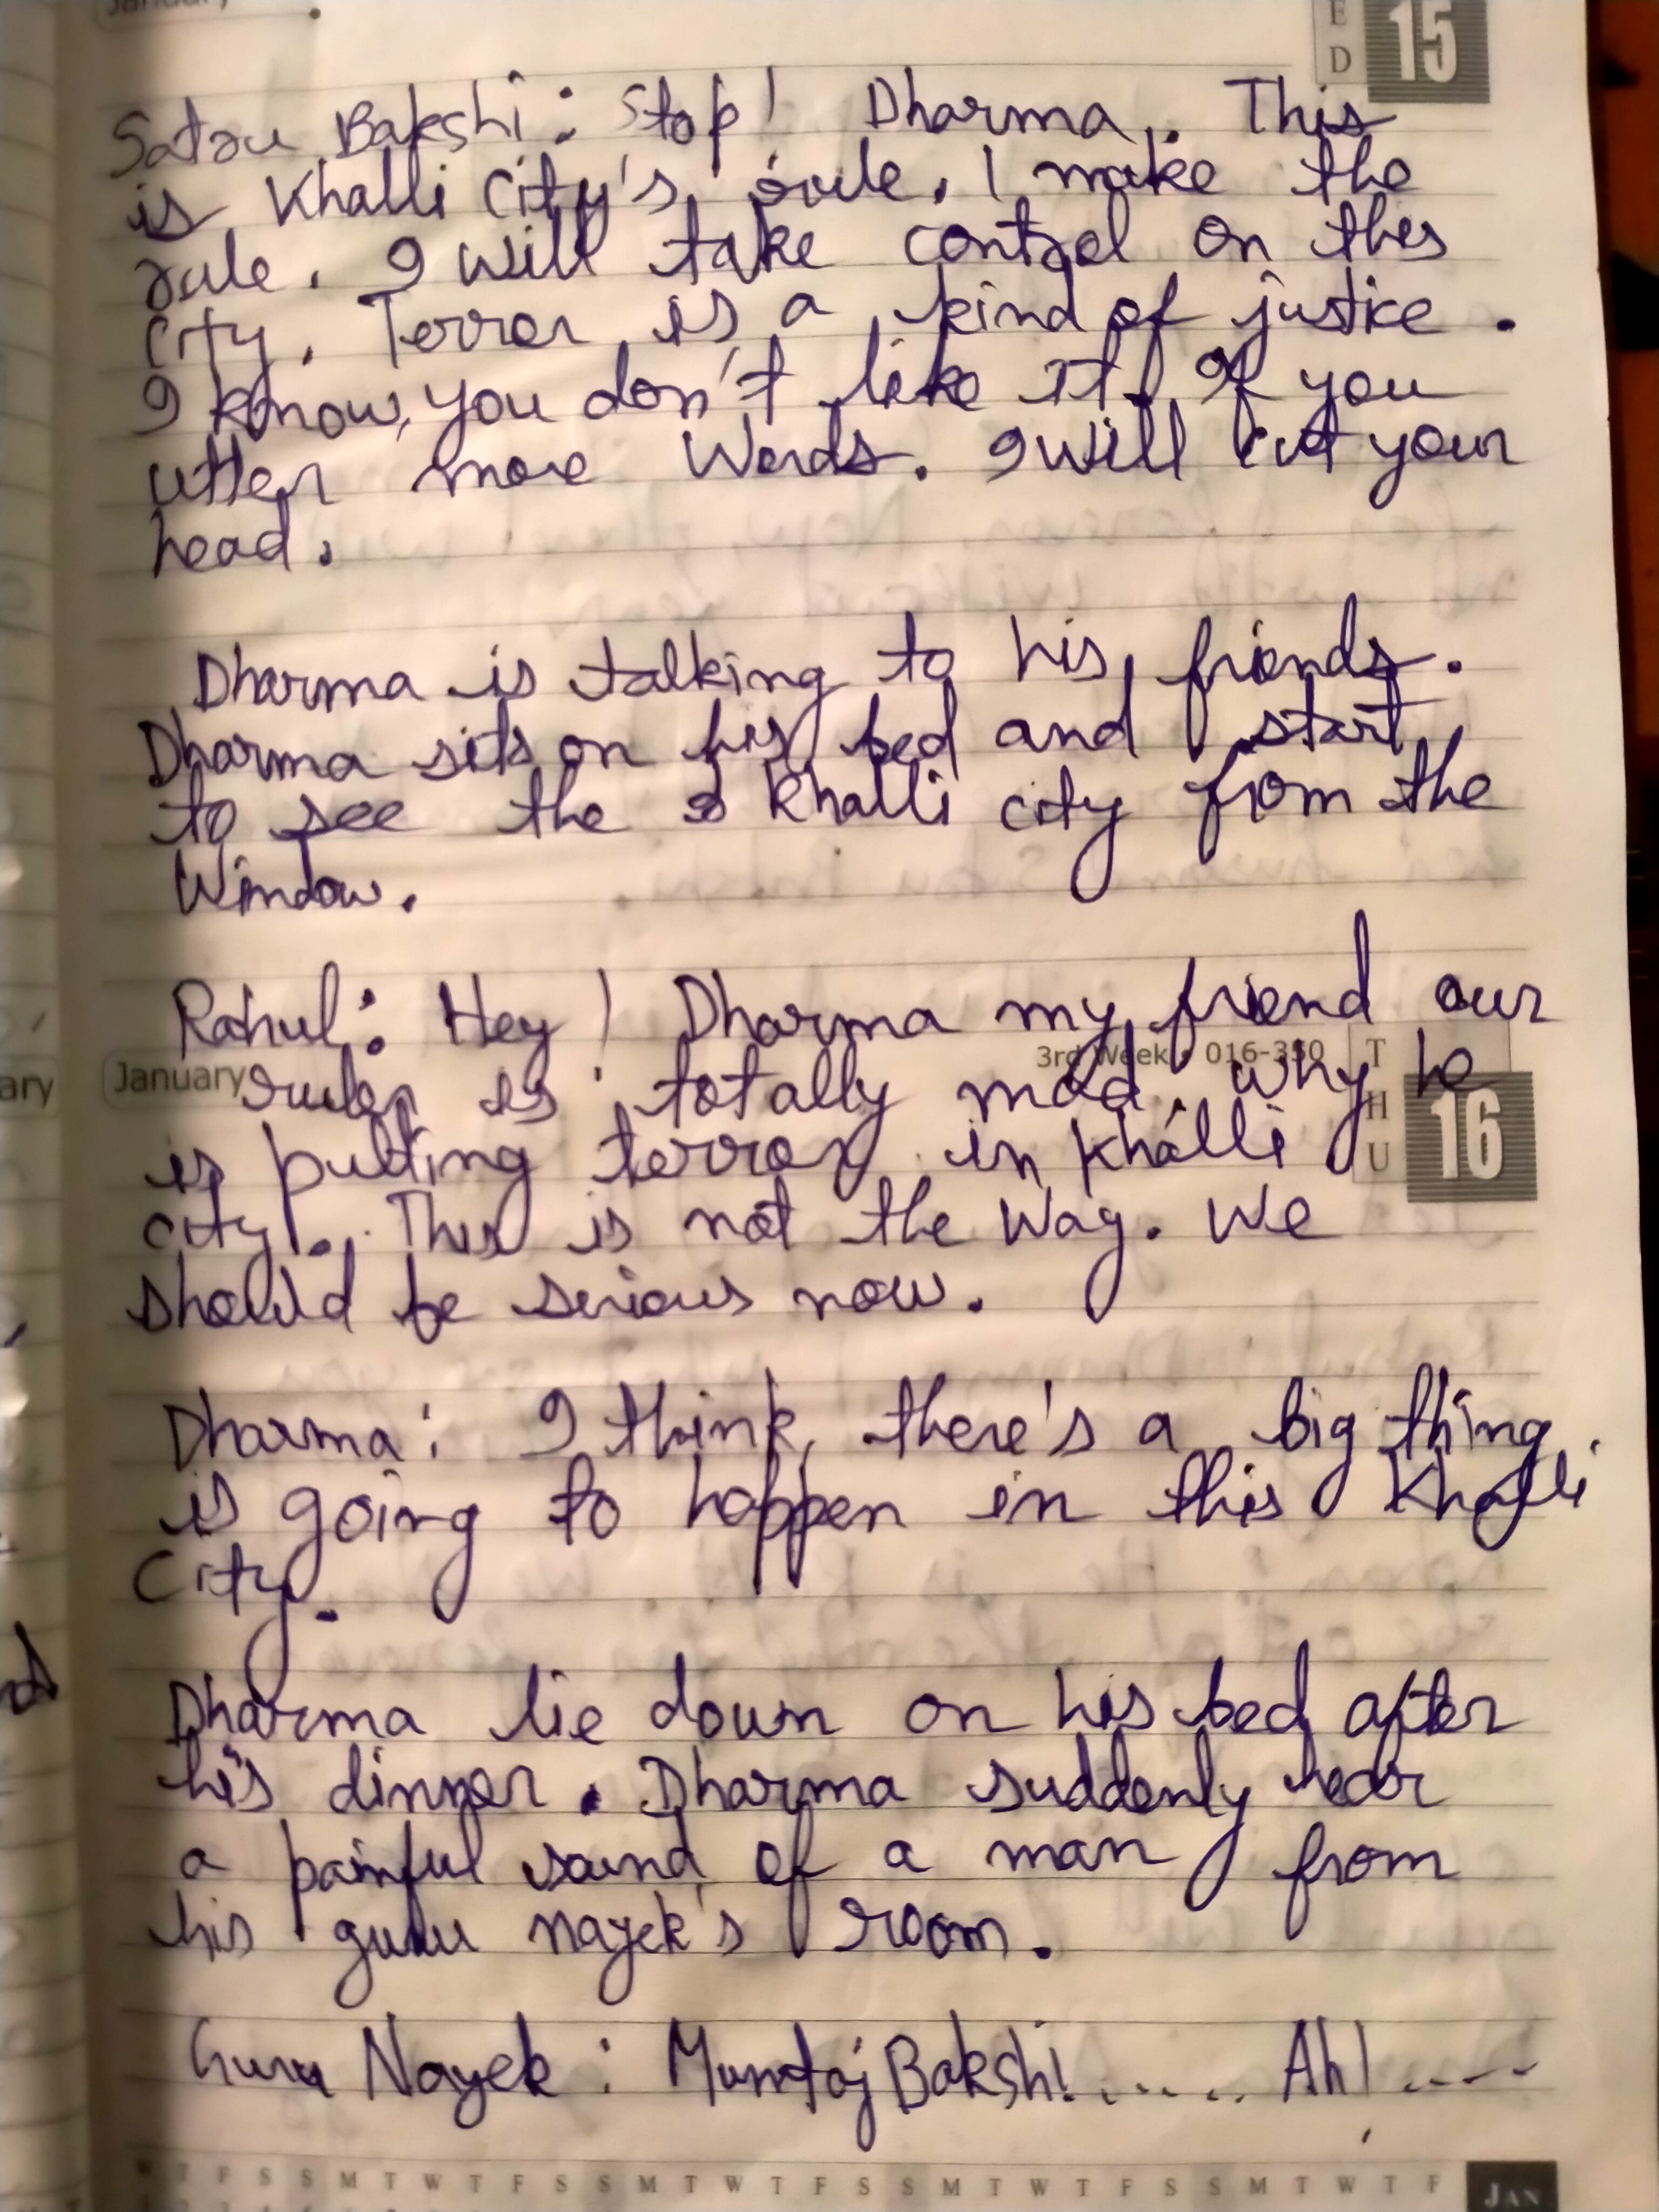 January
E
D
15
Satru Bakshi: Stop! Dharma. This
is Khalli City's rule. I make the
rule. I will take control on this
City. Terror is a kind of justice.
I know, you don't like it. If you
utter more words. I will cut your
head.
Dharma is talking to his friends.
Dharma sits on his bed and start
to see the Khalli city from the
Window.
Rahul: Hey! Dharma my friend our
3rd Week • 016-350
January
T
H
U
16
ruler is totally mad. why he
is putting terror in Khalli
city. This is not the way. We
should be serious now.
Dharma: I think, there's a big thing
is going to happen in this Khalli
City.
Dharma lie down on his bed after
his dinner. Dharma suddenly hear
a painful sound of a man from
his guru nayek's room.
Guru Nayek: Mumtaj Bakshi...... Ah!.....
W T F S S M T W T F S S M T W T F S S M T W T F S S M T W T F
JAN